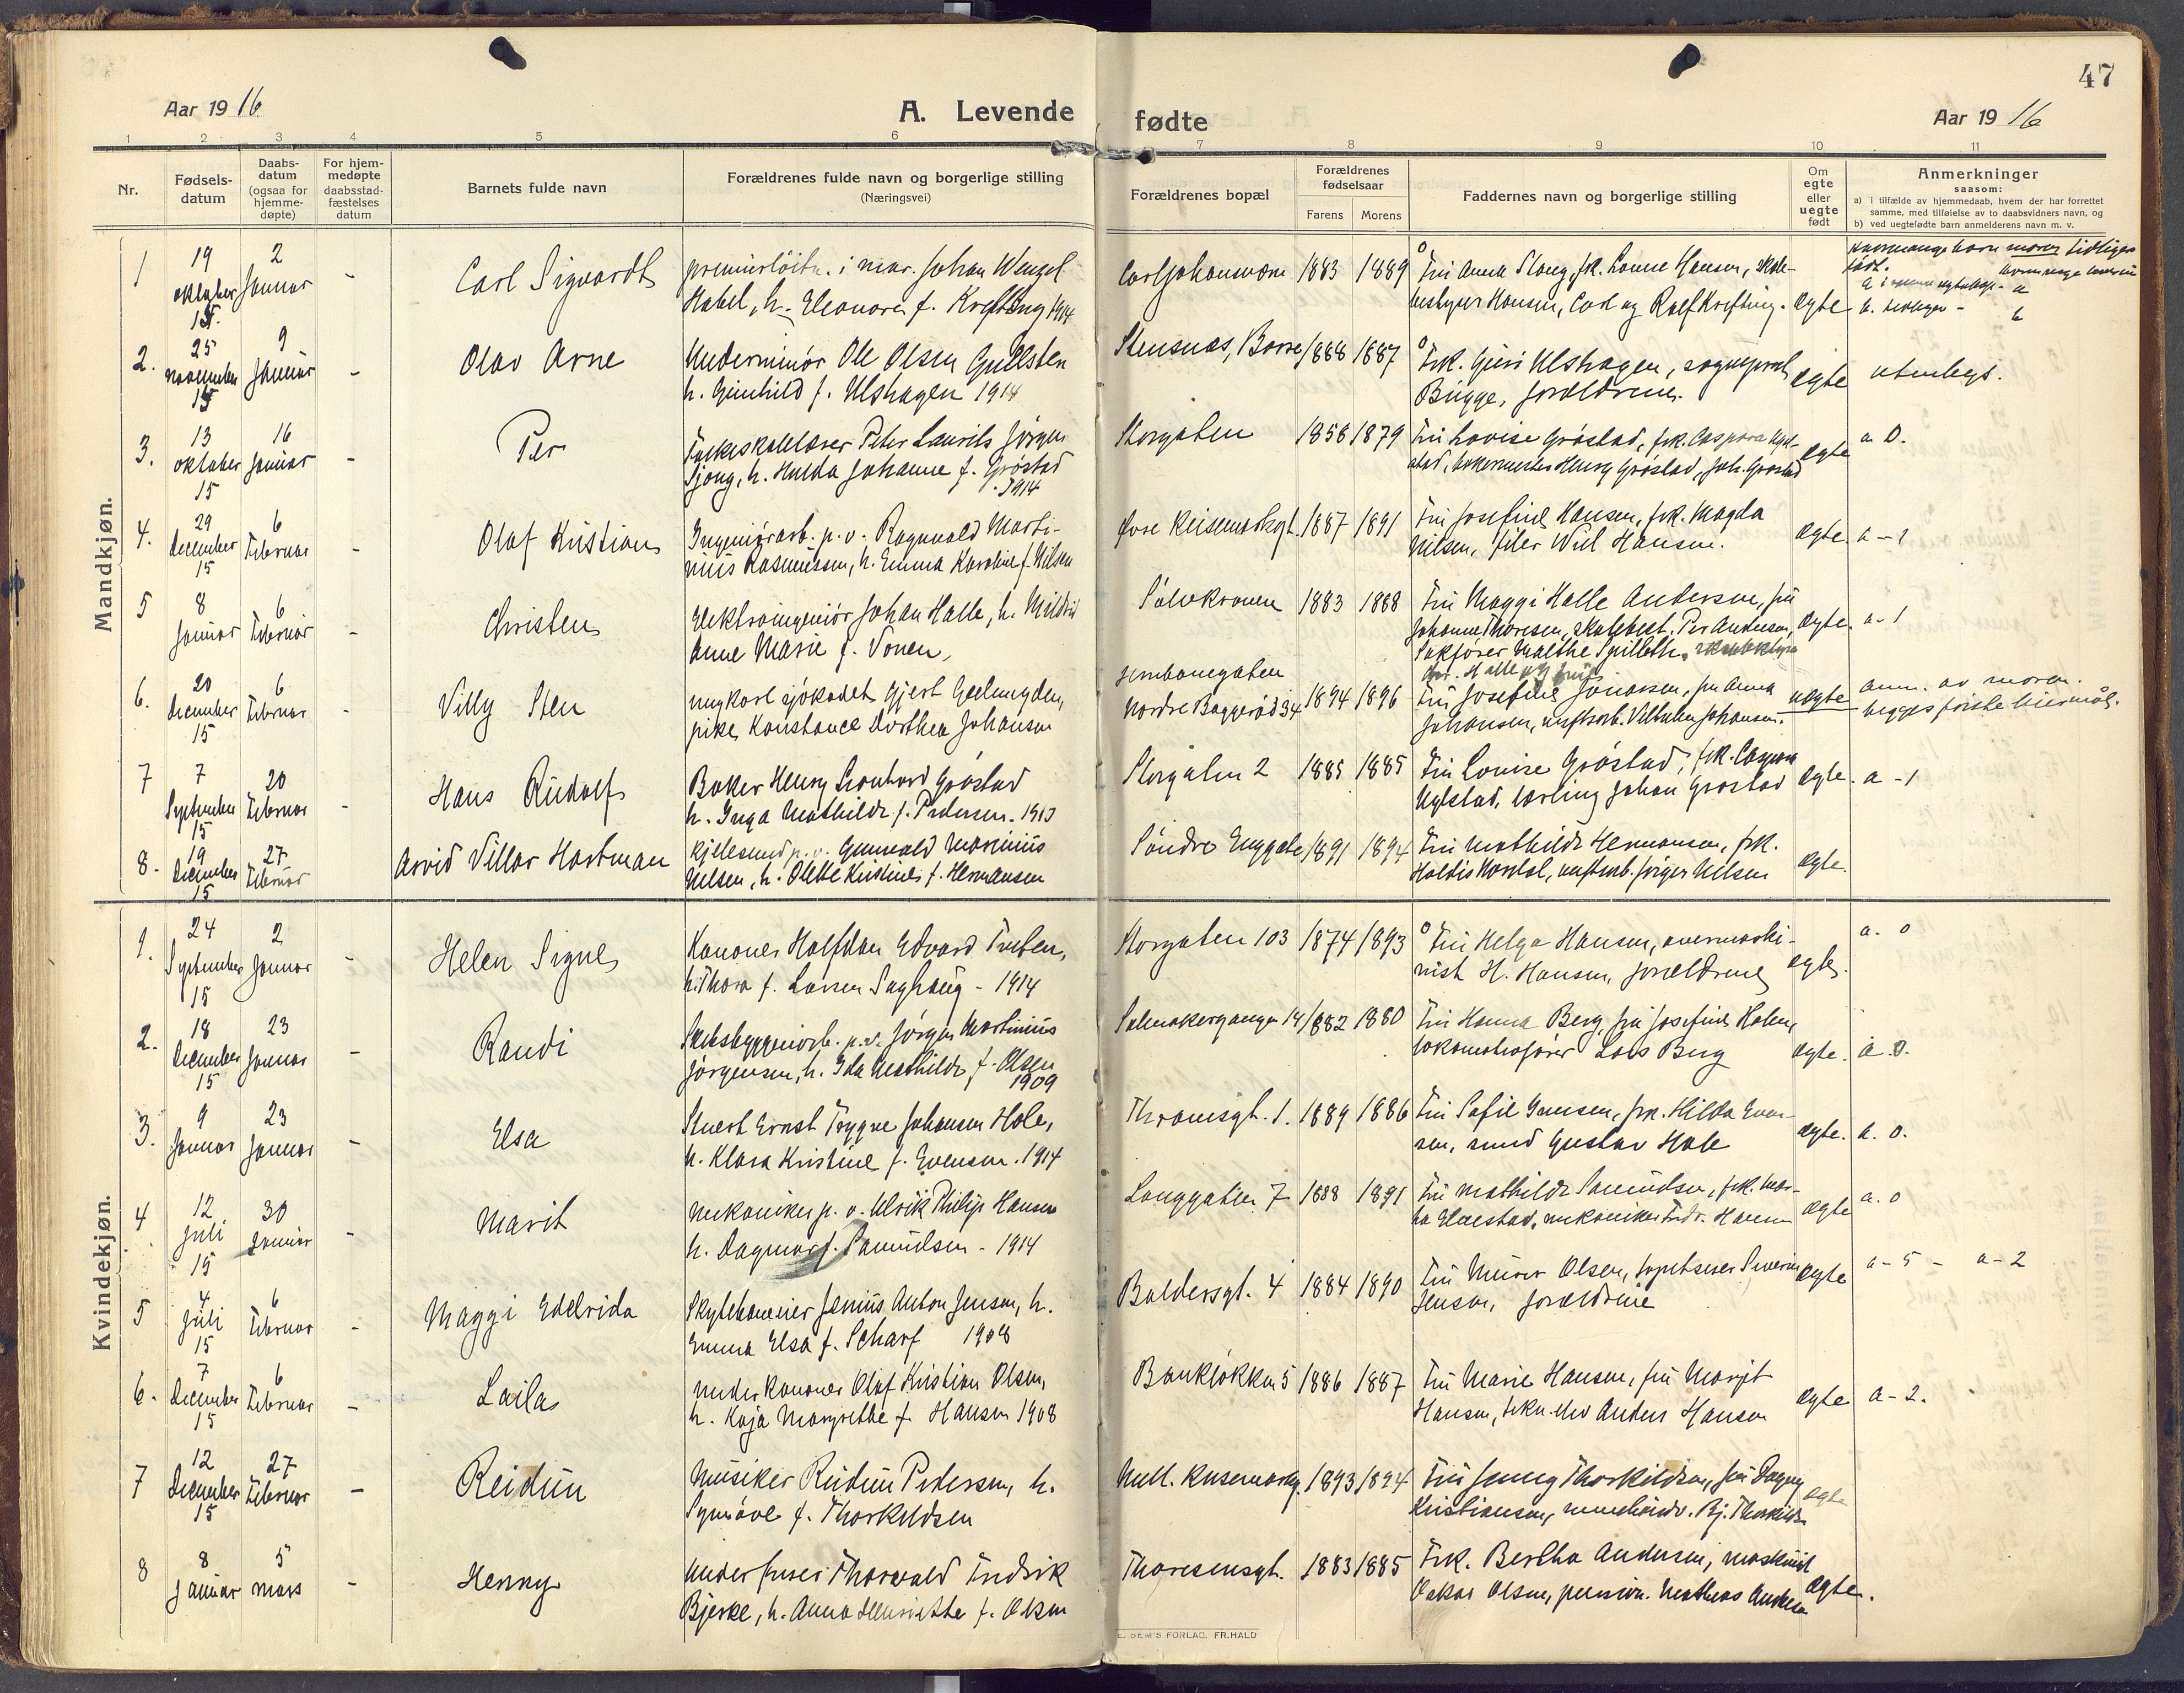 47
Aar 1916
A. Levende fødte
Aar 1916
1 2 3 4 5 6 7 8 9 10 11
Nr.
Fødsels-
datum
Daabs-
datum
(ogsaa for
hjemme-
døpte)
For hjem-
medøpte
daabsstad-
fæstelses
datum
Barnets fulde navn
Forældrenes fulde navn og borgerlige stilling
(Næringsvei)
Forældrenes bopæl
Forældrenes
fødselsaar
Farens Morens
Faddernes navn og borgerlige stilling
Om
egte
eller
uegte
født
Anmerkninger
saasom:
a) i tilfælde av hjemmedaab, hvem der har forrettet
samme, med tilføielse av to daabsvidners navn, og
b) ved uegtefødte barn anmelderens navn m. v.
Mandkjøn.
1 19 oktober 15. 2 Januar - Carl Sigvardt
premierløitn. i mar. Johan Wenzel
Habel, h. Eleonore f. Krefting 1914
Carljohansværn 1883 1889
Fru Anna Slang, frk. Louise Hansen, skole-
bestyrer Hansen, Carl og Rolf Krefting. egte
2. 25 november 15 9 Januar - Olav Arne
Underminør Ole Olsen Gullsten
h. Gunhild f. Ulshagen 1914
Stensnæs, Borre 1888 1887
Frk. Guri Ulshagen, sogneprest
Bugge, forældrene. egte utenbys.
3. 13 oktober 15 16 Januar - Per
Folkeskolelærer Peter Laurits Jörgen
Sjong, h. Hulda Johanne f. Gröstad
1914
Storgaten 1858 1879
Fru Lovise Gröstad, frk. Caspara
bakermester Henry Gröstad, Joh. Grøstad egte a. 0.
4. 29 december 15 6 Februar - Olaf Kristian
Ingeniörarb. p. v. Ragnvald Marti-
nius Rasmussen, h. Emma Karoline f. Nilsen
1887 1891
Fru Josefine Hansen, frk. Magda
Nilsen, filer Wil. Hansen. egte a - 1
5 8 Januar 6 Februar - Christen
Elektroingeniör Johan Halle, h. Mildrid
Anne Marie f. Vonen,
Sølvkronen 1883 1888
Fru Maggi Halle Andersen, fru
Johanne Thoresen, skolebest. Per Andersen,
Sakfører Malthe Spilleth. egte. a - 1
6. 20 december 15 6 Februar - Villy Sten
ungkarl sjökadet Gjert Geelmuyden,
pike Konstance Dorthea Johansen
Nordre Baggerød 34 1894 1896
Fru Josefine Johansen, fru Anna
Johansen, verftsarb. Vilhelm Johansen. uegte
anm. av moren.
begges første leiermål.
7 7 September 15 20 Februar - Hans Rudolf
Baker Henry Leonhard Gröstad
h. Inga Mathilde f. Pedersen. 1913
Storgaten 2 1885 1885
Fru Lovise Gröstad, frk. Caspara
lærling Johan Grøstad egte. a - 1
8. 19 December 15 27 Februar Arvid Villar Hartman
kjelesmed p. v. Gunvald Marinius
Nilsen, h. Olette Kristine f. Hermansen
Söndre Enggate 1891 1894
Fru Mathilde Hermansen, frk.
verftsarb. Jörgen Nilsen egte.
Kvindekjøn.
1. 24 September 15 2 Januar - Helen Signe
Kanoner Halfdan Edvard Treben,
h. Thora f. Larsen Saghaug - 1914
Storgaten 103 1874 1893
Fru Helga Hansen, overmaski-
nist H. Hansen, forældrene egte. a. 0
2. 18 December 15 23 Januar - Randi
Skibsbyggeriarb. p. v. Jörgen Martinius
Jörgensen, h. Ida Mathilde f. Olsen
1909
1882 1880
Fru Hanna Berg, fru Josefine Holm,
lokomotivförer Lars Berg egte. a. 0.
3. 9 Januar 23 Januar - Elsa
Stuert Ernst Trygve Johansen Hole,
h. Klara Kristine f. Evensen. 1914
Thranesgt. 1. 1889 1886
Fru Sofie Jensen, frk. Hilda Even-
sen, smed Gustav Hole egte. a. 0.
4 12 Juli 15 30 Januar - Marit
mekaniker p. v. Ulrik Philip Hansen
h. Dagmar f. Samuelsen - 1914
Langgaten 7 1888 1891
Fru Mathilde Samuelsen, frk. Mar-
mekaniker Fredr. Hansen egte a. 0
5 4 Juli 15 6 Februar - Maggi Edelrida
Skytebaneeier Jenius Anton Jensen, h.
Emma Elsa f. Scharf 1908
Baldersgt. 4 1884 1890
Fru Olsen, Severin
Jensen, forældrene egte a - 5 - a - 2
6. 7 December 15 6 Februar - Laila
underkanoner Olaf Kristian Olsen,
h. Kaja Margrethe f. Hansen 1908
Bankløkken 5 1886 1887
Fru Marie Hansen, fru Margit
Hansen, Anders Hansen egte a - 2.
7 12 December 15 27 Februar - Reidun
Musiker Reidun Pedersen, h.
Synøve f. Thorkildsen
1893 1894
Fru Jenny Thorkildsen, fru Dagny
Kristiansen, Bj. Thorkildsen egte
8 8 Januar 5 mars - Henny
Underfurer Thorvald Fredrik
Bjerke, h. Anna Henriette f. Olsen
Thoresensgt. 1883 1885
Frk. Bertha Andersen, maskinist
Oskar Olsen, pension. Mathias Andersen egte.
E. SEM'S FORLAG. FR.HALD